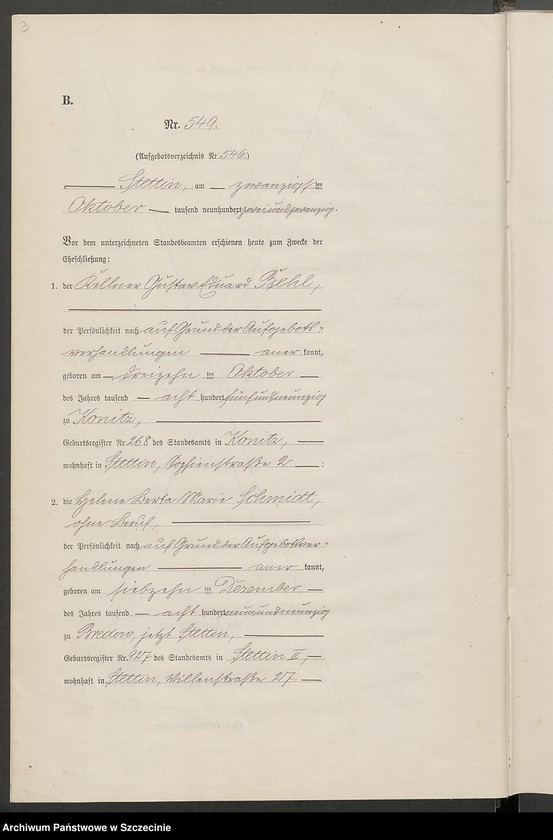 3
B.
Nr. 549.
(Aufgebotsverzeichnis Nr. 546.)
Stettin, am zwanzigsten
Oktober tausend neunhundert zweiundzwanzig.
Vor dem unterzeichneten Standesbeamten erschienen heute zum Zwecke der
Eheschließung:
1. der Kellner Gustav Eduard Behl,
der Persönlichkeit nach auf Grund der Aufgebots-
verhandlungen anerkannt,
geboren am dreizehnten Oktober
des Jahres tausend acht hundert fünfundneunzig
zu Konitz,
Geburtsregister Nr. 268 des Standesamts in Konitz,
wohnhaft in Stettin, Sophienstraße 2;
2. die Helene Berta Marie Schmidt,
ohne Beruf,
der Persönlichkeit nach auf Grund der Aufgebotsver-
handlungen anerkannt,
geboren am siebzehnten Dezember
des Jahres tausend acht hundert neunundneunzig
zu Bredow, jetzt Stettin,
Geburtsregister Nr. 927 des Standesamts in Stettin II,
wohnhaft in Stettin, Willenstraße 27.
Archiwum Państwowe w Szczecinie